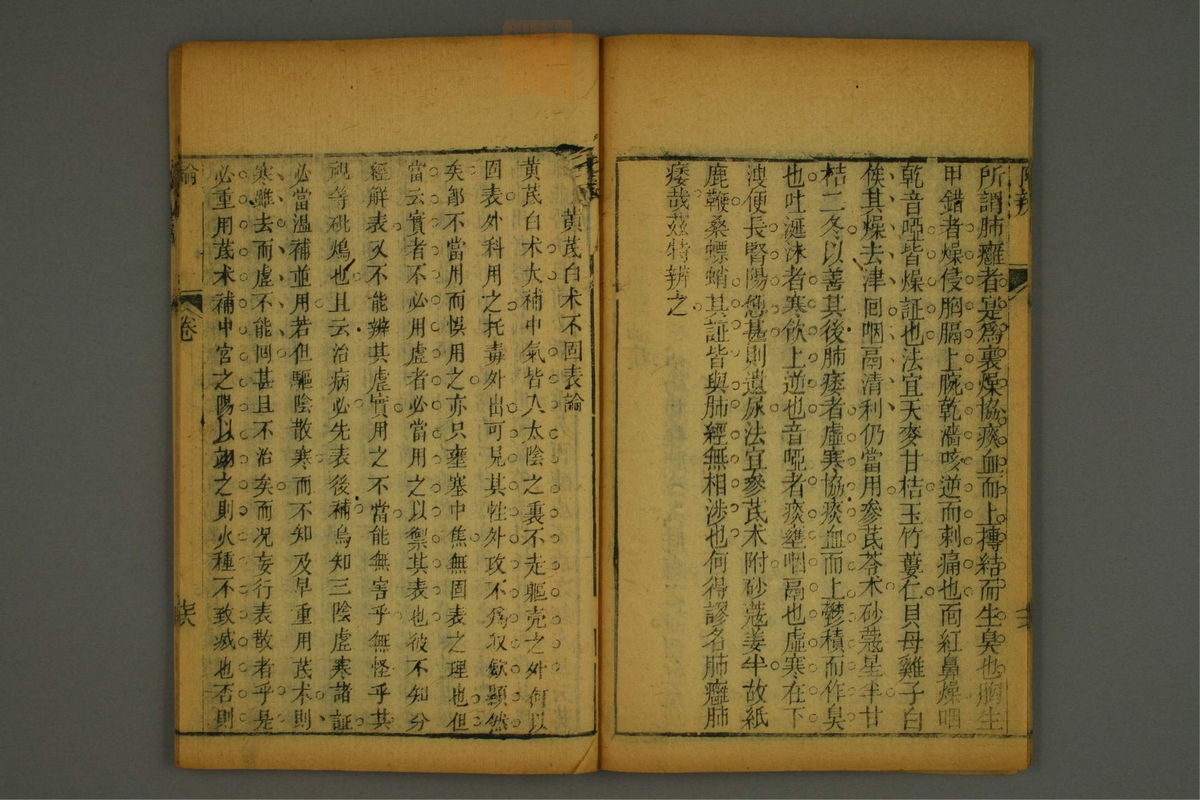 所謂肺癰者寔爲裏燥協痰血而上摶結而生臭也胸生
甲錯者燥侵胸膈上腕乾濇咳逆而刺痛也面紅鼻燥咽
乾音啞皆燥証也法宜天麥甘桔玉竹蔞仁貝母雞子白
俟其燥去津回咽鬲清利仍當用參芪苓术砂蔻星半甘
桔二冬以善其後肺痿者虛寒協痰血而上鬱積而作臭
也吐涎沫者寒飲上逆也音啞者痰壅咽鬲也虛寒在下
溲便長腎陽憊甚則遺尿法宜參芪术附砂蔻姜半故紙
鹿鞭桑螵蛸其証皆與肺經無相涉也何得謬名肺癰肺
痿哉茲特辨之
黃芪白术不固表論
黃芪白术大補中氣皆入太陰之裏不走軀壳之外何以
固表外科用之托毒外出可見其性外攻不爲収歛顯然
矣郎不當用而悞用之亦只壅塞中焦無固表之理也但
當云實者不必用虛者必當用之以禦其表也彼不知分
經解表又不能辨其虛實用之不當能無害乎無怪乎其
視等砒鴆也且云治病必先表後補烏知三陰虛寒諸証
必當溫補並用若但驅陰散寒而不知及早重用芪术則
寒雖去而虛不能回甚且不治矣而况妄行表散者乎是
必重用芪术補中宮之陽以翊之則火種不致滅也否則
論
卷